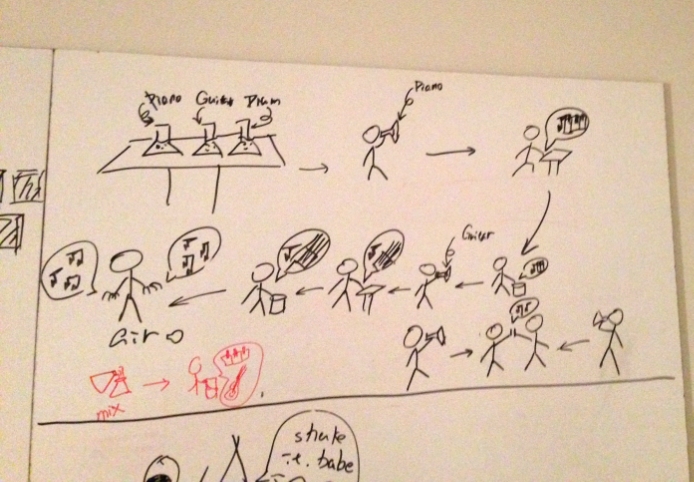 Piano Guitar Drum
Piano
Guitar
air
mix
shake
i.e. babe